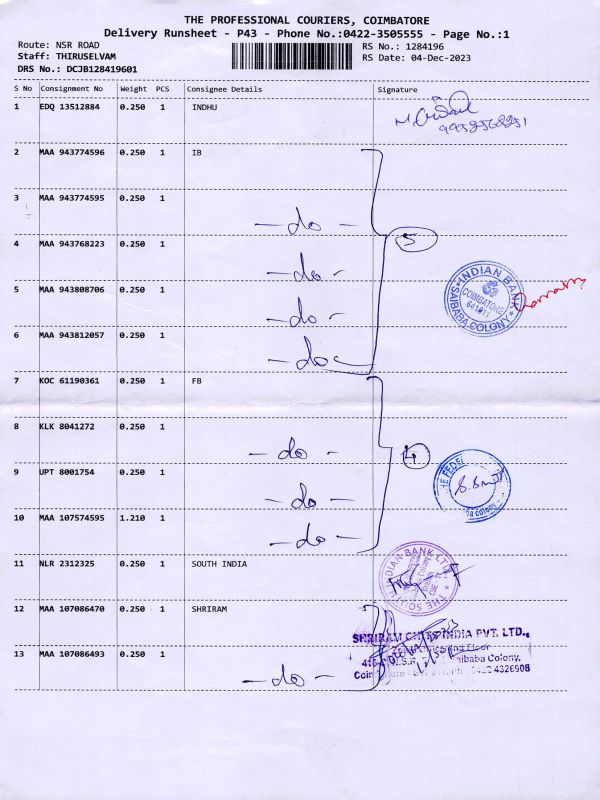 THE PROFESSIONAL COURIERS, COIMBATORE
Delivery Runsheet - P43 - Phone No.:0422-3505555 - Page No.:1
Route: NSR ROAD
Staff: THIRUSELVAM
DRS No.: DCJB128419601
RS No.: 1284196
RS Date: 04-Dec-2023
S No Consignment No Weight PCS Consignee Details Signature
1 EDQ 13512884 0.250 1 INDHU
9952568251
2 MAA 943774596 0.250 1 IB
3 MAA 943774595 0.250 1
- do -
5
4 MAA 943768223 0.250 1
- do -
INDIAN BANK
COIMBATORE
641011
SAIBABA COLONY
5 MAA 943808706 0.250 1
- do -
6 MAA 943812057 0.250 1
- do -
7 KOC 61190361 0.250 1 FB
8 KLK 8041272 0.250 1
- do -
4
9 UPT 8001754 0.250 1
- do -
10 MAA 107574595 1.210 1
- do -
11 NLR 2312325 0.250 1 SOUTH INDIA
THE SOUTH INDIAN BANK LTD.
12 MAA 107086470 0.250 1 SHRIRAM
SHRIRAM INDIA PVT. LTD.,
Floor
Saibaba Colony,
13 MAA 107086493 0.250 1
- do -
4326908